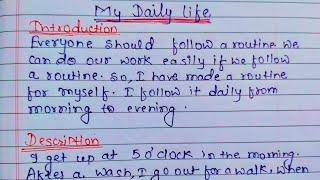 My Daily life
Introduction
Everyone should follow a routine we
can do our work easily if we follow
a routine. So, I have made a routine
for myself. I follow it daily from
morning to evening.
Description
I get up at 5 o'clock in the morning.
After a wash, I go out for a walk, when